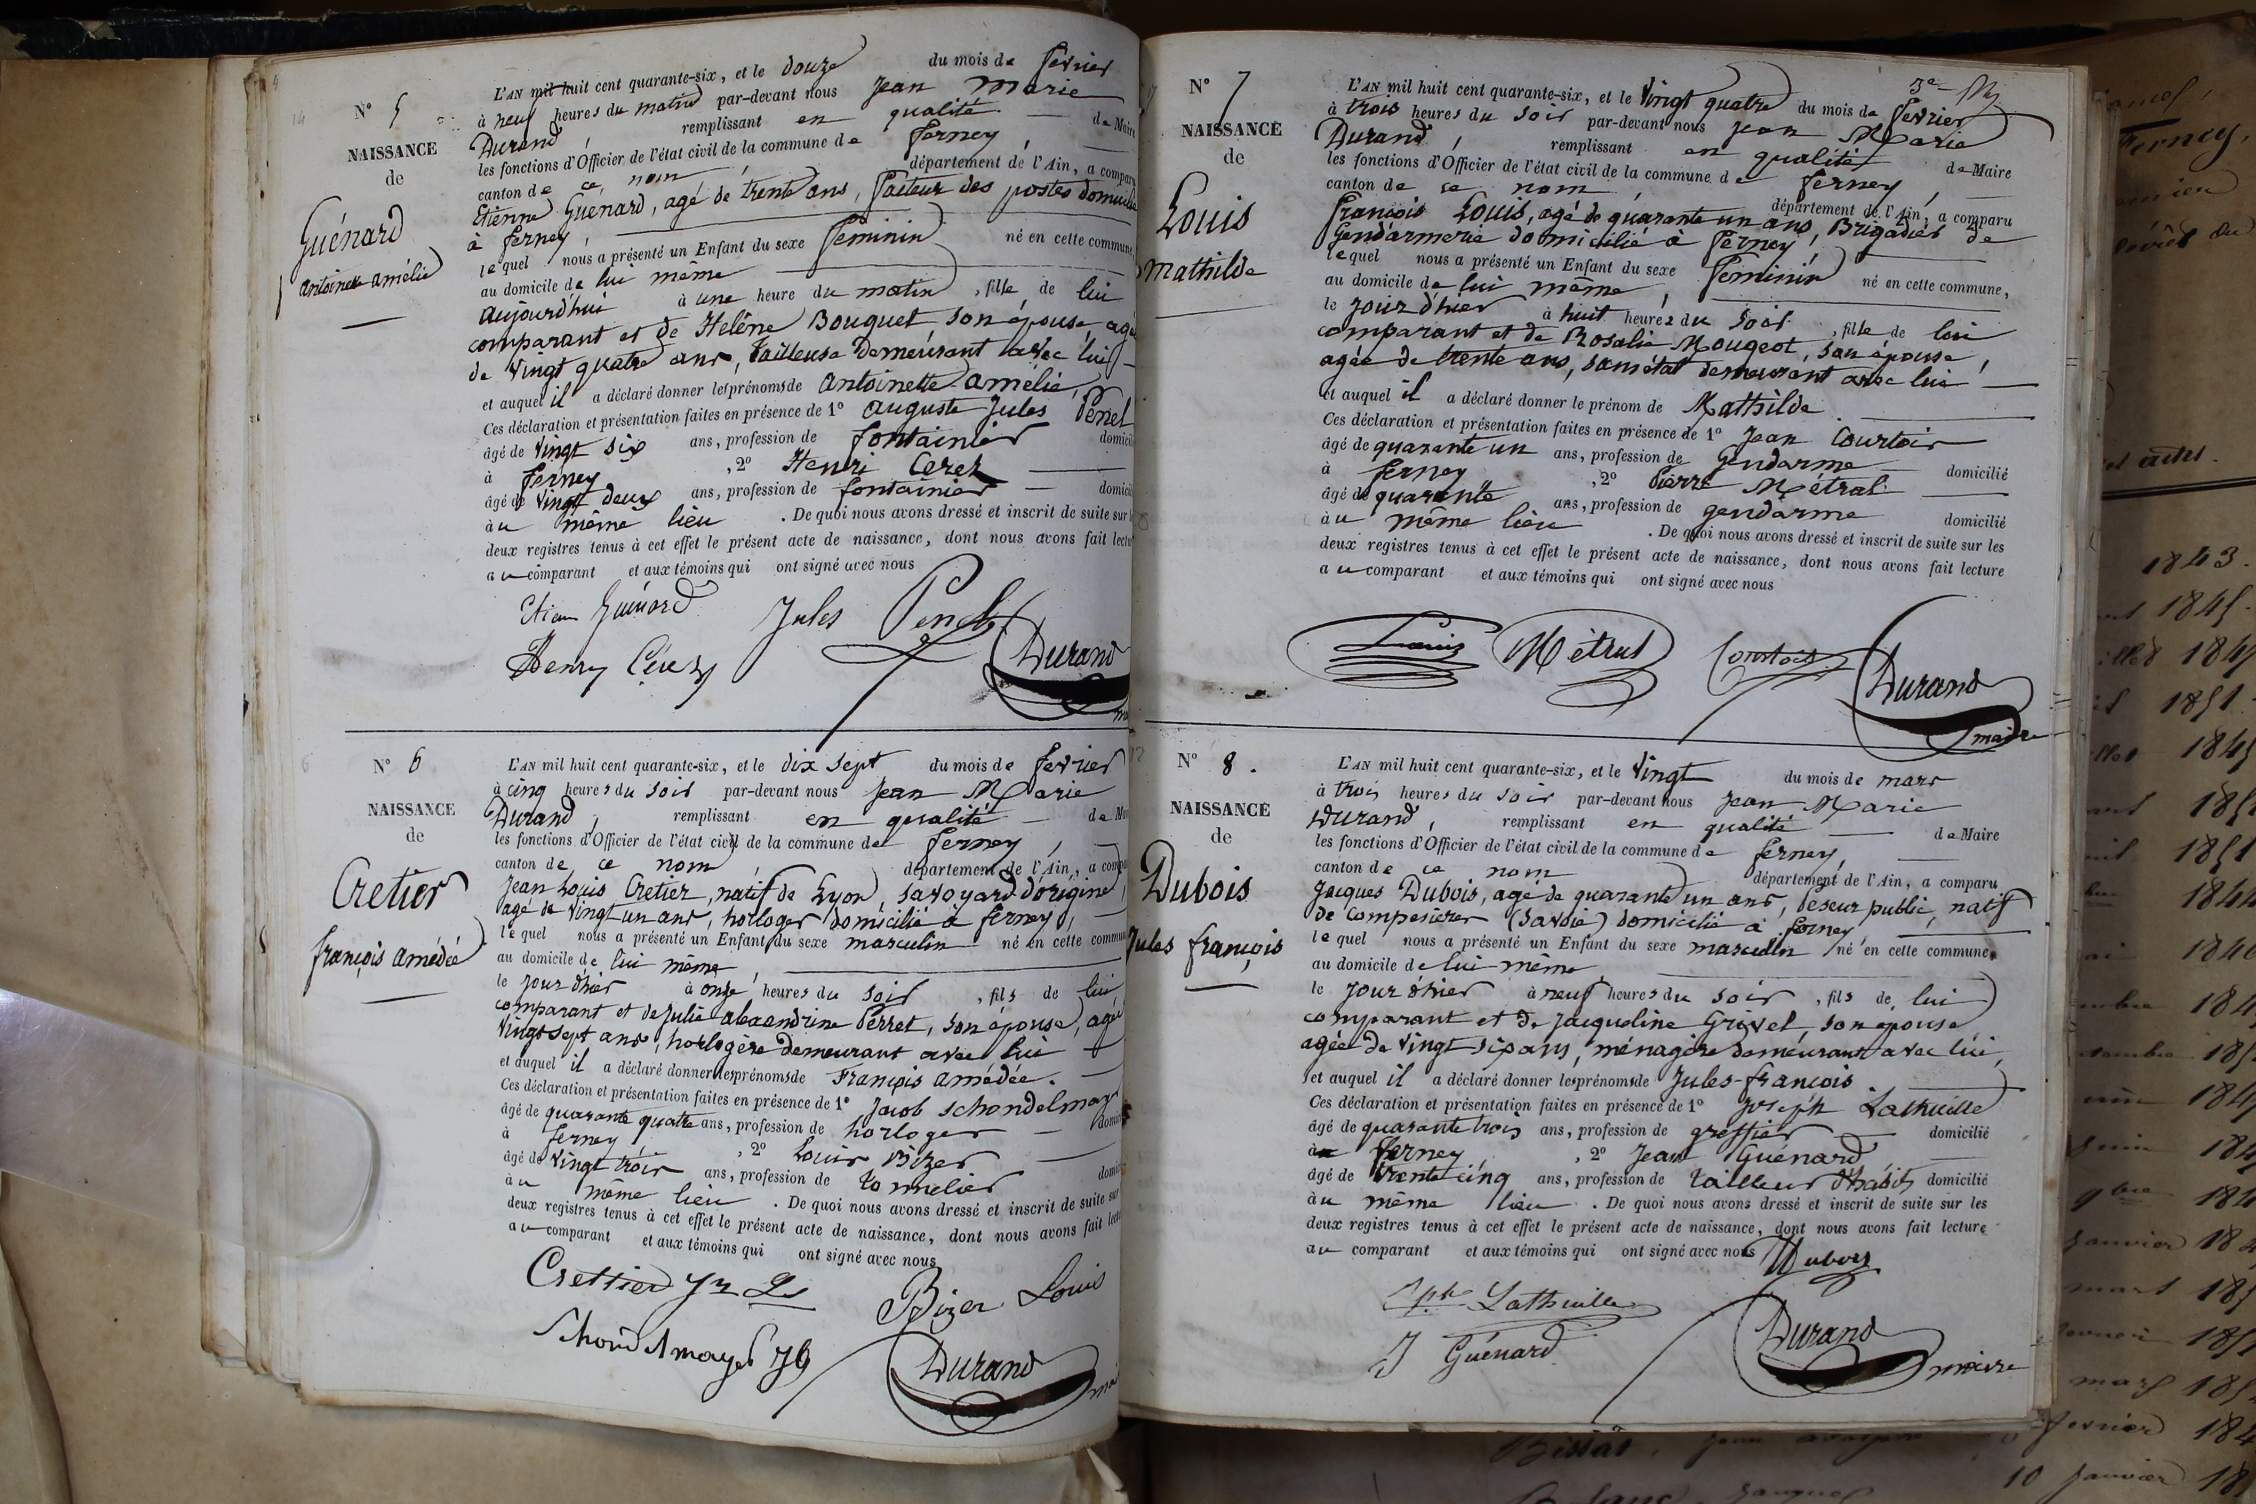 N° 5
NAISSANCE
de
Guénard
antoinette amélie
L'AN mil huit cent quarante-six, et le douze du mois de février
à neuf heures du matin par-devant nous Jean Marie
Durand, remplissant en qualité de Maire
les fonctions d'Officier de l'état civil de la commune de ferney,
canton de ce nom, département de l'Ain, a comparu
Etienne Guénard, agé de trente ans, facteur des postes domicilié
à ferney,
lequel nous a présenté un Enfant du sexe feminin né en cette commune,
au domicile de lui même
aujourd'hui à une heure du matin, fille de lui
comparant et de Helène Bouquet, son épouse, agée
de vingt quatre ans, tailleuse demeurant avec lui
et auquel il a déclaré donner les prénoms de antoinette amélie,
Ces déclaration et présentation faites en présence de 1° auguste Jules Penel
âgé de vingt six ans, profession de fontainier domicilié
à ferney, 2° Henri Cerez
âgé de vingt deux ans, profession de fontainier domicilié
au même lieu. De quoi nous avons dressé et inscrit de suite sur les
deux registres tenus à cet effet le présent acte de naissance, dont nous avons fait lecture
au comparant et aux témoins qui ont signé avec nous
Guénard Jules Penel
Henry Durand
N° 6
NAISSANCE
de
Cretier
françois amédée
L'AN mil huit cent quarante-six, et le dix sept du mois de fevrier
à cinq heures du soir par-devant nous Jean Marie
Durand, remplissant en qualité de Maire
les fonctions d'Officier de l'état civil de la commune de ferney,
canton de ce nom, département de l'Ain, a comparu
Jean Louis Cretier, natif de Lyon, savoyard d'origine,
agé de vingt un ans, horloger domicilié à ferney,
lequel nous a présenté un Enfant du sexe masculin né en cette commune
au domicile de lui même,
le jour d'hier à onze heures du soir, fils de lui
comparant et de Julie alexandrine Perret, son épouse, agée
vingt sept ans, horlogère demeurant avec lui
et auquel il a déclaré donner les prénoms de François amédée.
Ces déclaration et présentation faites en présence de 1° Jacob Schondelmayer
âgé de quarante quatre ans, profession de horloger domicilié
à ferney, 2° Louis Bizer
âgé de vingt trois ans, profession de tonnelier domicilié
au même lieu. De quoi nous avons dressé et inscrit de suite sur
deux registres tenus à cet effet le présent acte de naissance, dont nous avons fait lecture
au comparant et aux témoins qui ont signé avec nous
Crettier Jn Ls Bizer Louis
Durand
N° 7
NAISSANCE
de
Louis
Mathilde
L'AN mil huit cent quarante-six, et le vingt quatre du mois de fevrier
à trois heures du soir par-devant nous Jean Marie
Durand, remplissant en qualité de Maire
les fonctions d'Officier de l'état civil de la commune de ferney,
canton de ce nom, département de l'Ain, a comparu
françois Louis, agé de quarante un ans, Brigadier de
Gendarmerie domicilié à ferney,
lequel nous a présenté un Enfant du sexe feminin né en cette commune,
au domicile de lui même,
le jour d'hier à huit heures du soir, fille de lui
comparant et de Rosalie Mougeot, son épouse,
agée de trente ans, sans état demeurant avec lui
et auquel il a déclaré donner le prénom de Mathilde.
Ces déclaration et présentation faites en présence de 1° Jean Courtois
âgé de quarante un ans, profession de Gendarme
à ferney, 2° Pierre Métral domicilié
âgé de quarante ans, profession de gendarme
au même lieu. De quoi nous avons dressé et inscrit de suite sur les domicilié
deux registres tenus à cet effet le présent acte de naissance, dont nous avons fait lecture
au comparant et aux témoins qui ont signé avec nous
Louis Métral Courtois Durand
maire
N° 8.
NAISSANCE
de
Dubois
Jules françois
L'AN mil huit cent quarante-six, et le vingt du mois de mars
à trois heures du soir par-devant nous Jean Marie
Durand, remplissant en qualité de Maire
les fonctions d'Officier de l'état civil de la commune de ferney,
canton de ce nom département de l'Ain, a comparu
Jacques Dubois, agé de quarante un ans, peseur public, natif
de (Savoie) domicilié à ferney
lequel nous a présenté un Enfant du sexe masculin né en cette commune,
au domicile de lui-même
le jour d'hier à neuf heures du soir, fils de lui
comparant et de Jacqueline Grivel, son épouse
agée de vingt six ans, ménagère demeurant avec lui,
et auquel il a déclaré donner les prénoms de Jules-françois.
Ces déclaration et présentation faites en présence de 1° Joseph Lathuille
âgé de quarante trois ans, profession de greffier domicilié
à ferney, 2° Jean Guénard
âgé de trente cinq ans, profession de tailleur d'habits domicilié
au même lieu. De quoi nous avons dressé et inscrit de suite sur les
deux registres tenus à cet effet le présent acte de naissance, dont nous avons fait lecture
au comparant et aux témoins qui ont signé avec nous Dubois
Jph Lathuille
J Guénard Durand
maire
Ferney,
1843.
1845.
1851
janvier
mars
fevrier
10 janvier